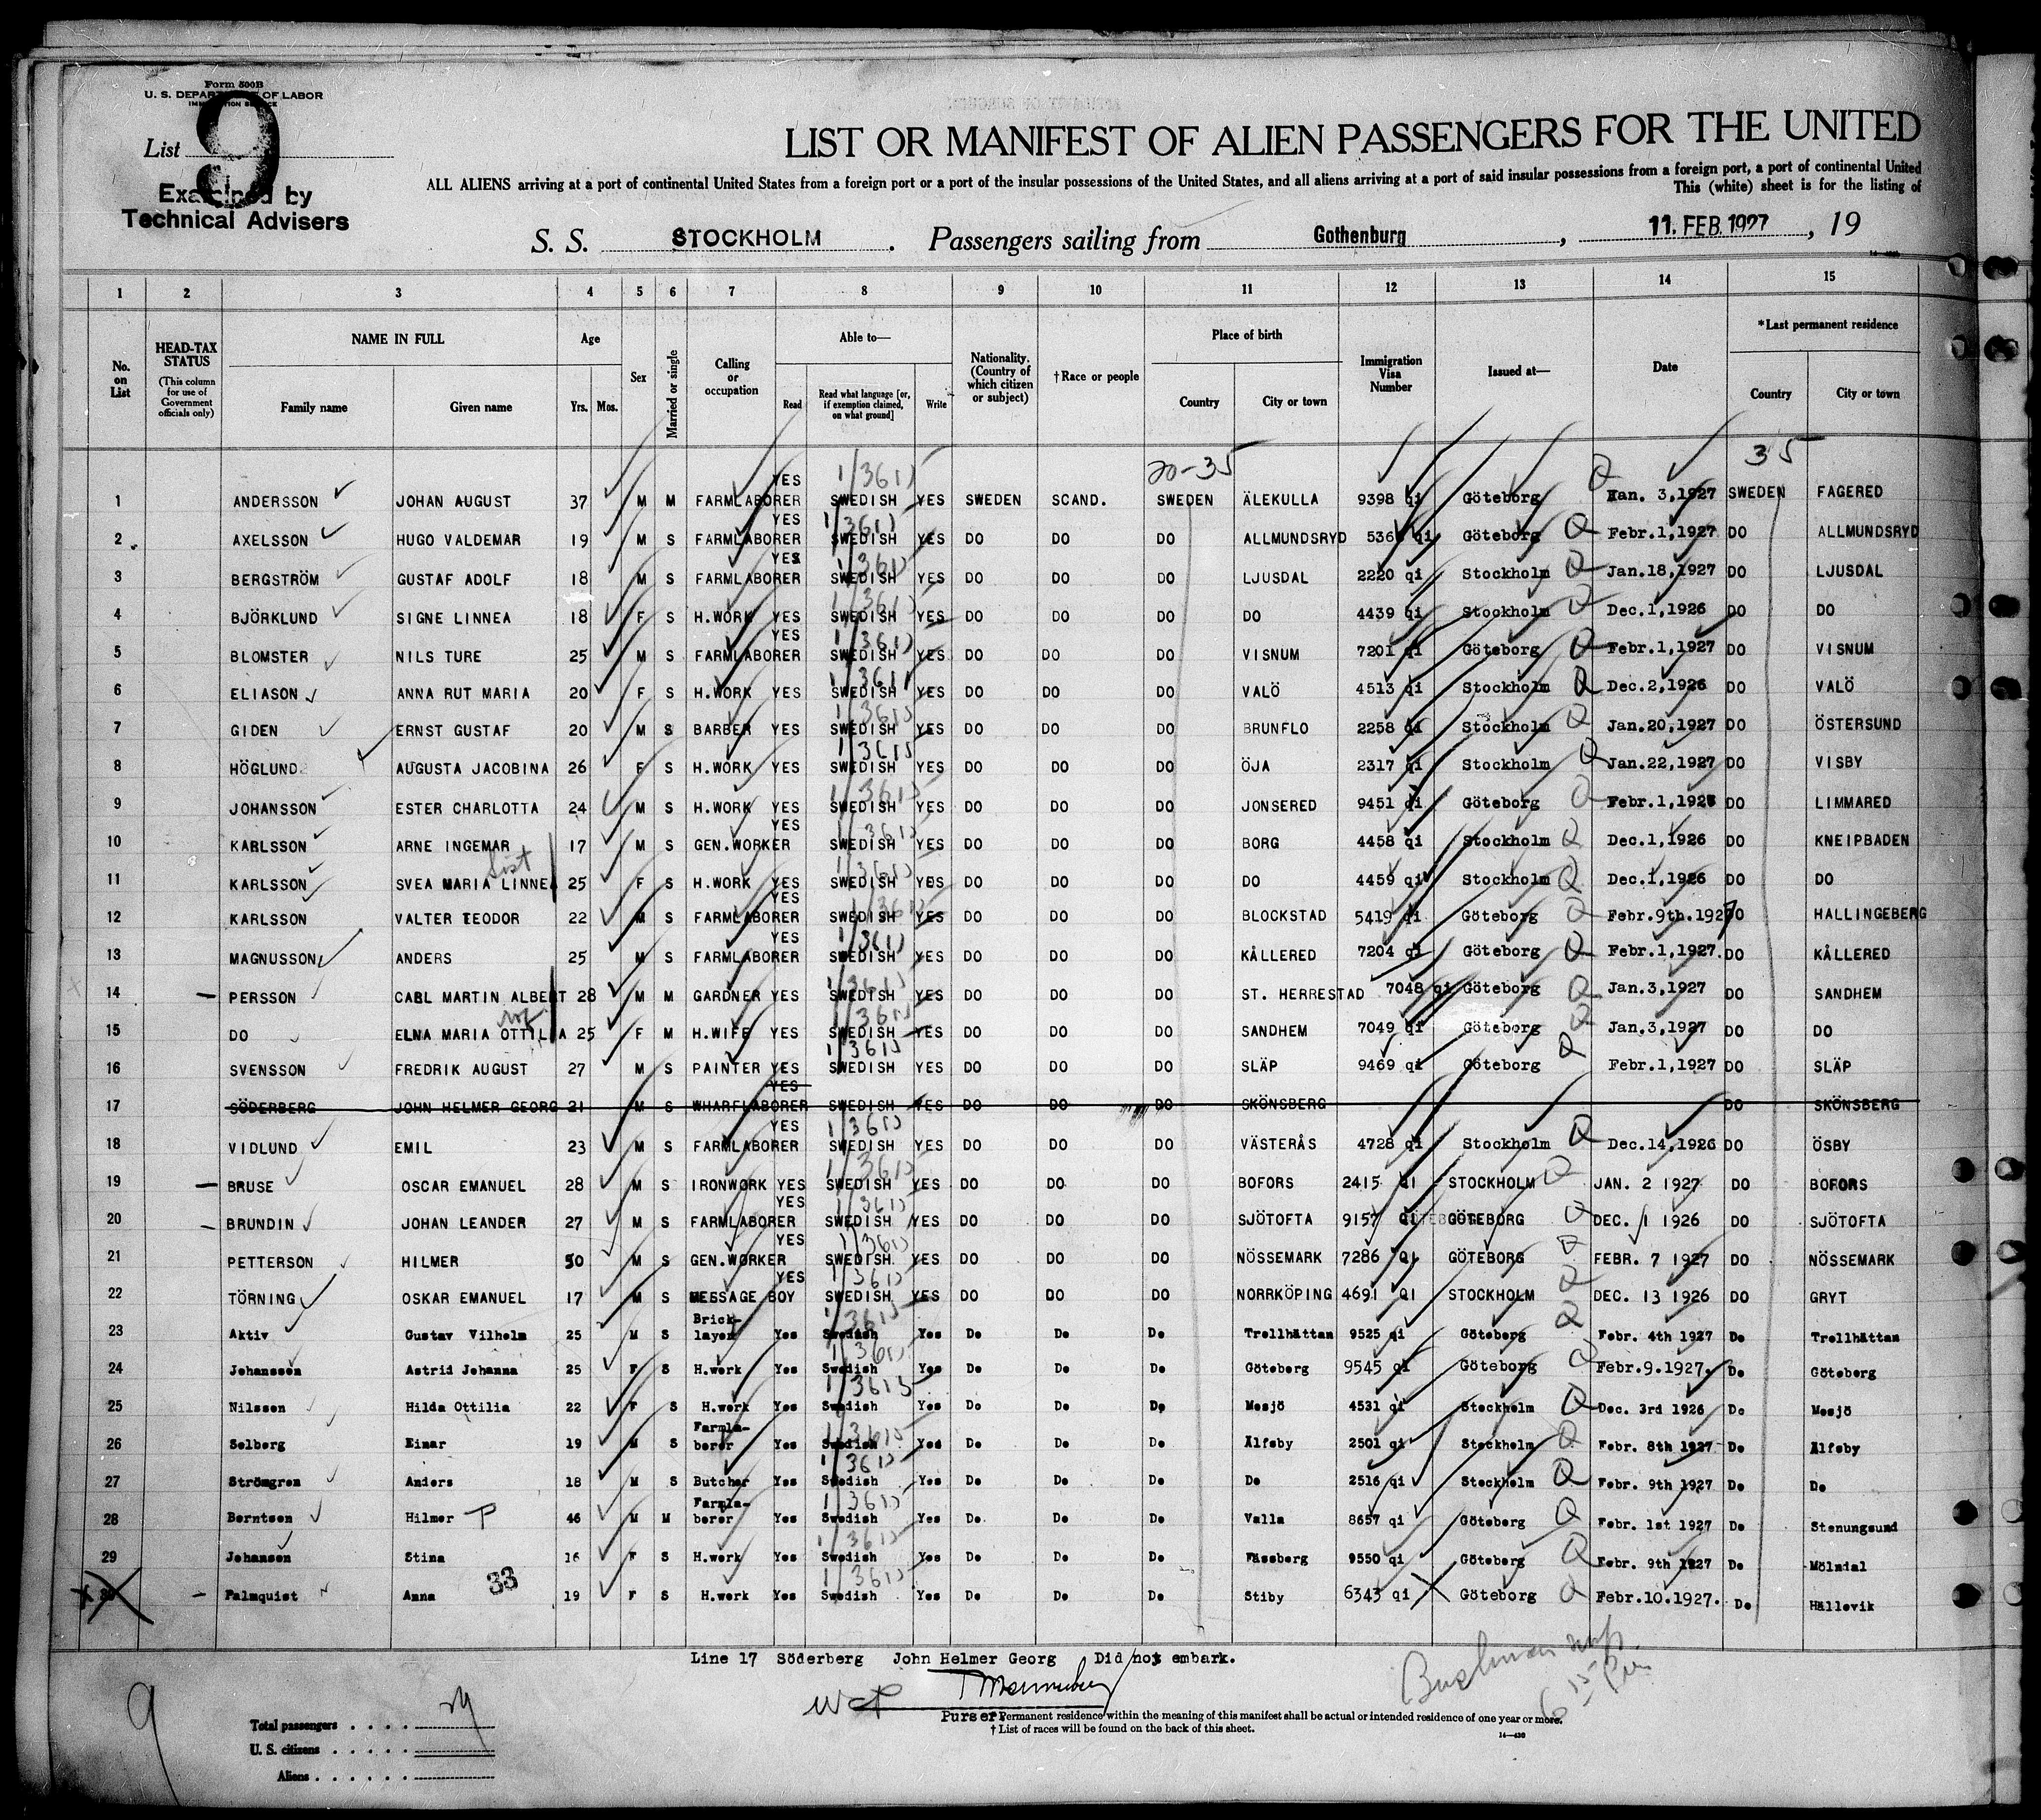 Form 500B
U. S. DEPARTMENT OF LABOR
IMMIGRATION SERVICE
List 9
Examined by
Technical Advisers
LIST OR MANIFEST OF ALIEN PASSENGERS FOR THE UNITED
ALL ALIENS arriving at a port of continental United States from a foreign port or a port of the insular possessions of the United States, and all aliens arriving at a port of said insular possessions from a foreign port, a port of continental United
This (white) sheet is for the listing of
S. S. STOCKHOLM . Passengers sailing from Gothenburg , 11. FEB. 1927 , 19
1 2 3 4 5 6 7 8 9 10 11 12 13 14 15
No. on List
HEAD-TAX STATUS (This column for use of Government officials only)
NAME IN FULL
Family name Given name
Age
Yrs. Mos.
Sex
Married or single
Calling or occupation
Able to—
Read
Read what language [or, if exemption claimed, on what ground]
Write
Nationality. (Country of which citizen or subject)
†Race or people
Place of birth
Country City or town
Immigration Visa Number
Issued at—
Date
*Last permanent residence
Country City or town
20-35 35
1 ANDERSSON JOHAN AUGUST 37 M M FARMLABORER YES SWEDISH YES SWEDEN SCAND. SWEDEN ÄLEKULLA 9398 qi Göteborg Jan. 3,1927 SWEDEN FAGERED
2 AXELSSON HUGO VALDEMAR 19 M S FARMLABORER YES SWEDISH YES DO DO DO ALLMUNDSRYD 536 qi Göteborg Febr.1,1927 DO ALLMUNDSRYD
3 BERGSTRÖM GUSTAF ADOLF 18 M S FARMLABORER YES SWEDISH YES DO DO DO LJUSDAL 2220 qi Stockholm Jan.18,1927 DO LJUSDAL
4 BJÖRKLUND SIGNE LINNEA 18 F S H.WORK YES SWEDISH YES DO DO DO DO 4439 qi Stockholm Dec.1,1926 DO DO
5 BLOMSTER NILS TURE 25 M S FARMLABORER YES SWEDISH YES DO DO DO VISNUM 7201 qi Göteborg Febr.1,1927 DO VISNUM
6 ELIASON ANNA RUT MARIA 20 F S H.WORK YES SWEDISH YES DO DO DO VALÖ 4513 qi Stockholm Dec.2,1926 DO VALÖ
7 GIDEN ERNST GUSTAF 20 M S BARBER YES SWEDISH YES DO DO DO BRUNFLO 2258 qi Stockholm Jan.20,1927 DO ÖSTERSUND
8 HÖGLUND AUGUSTA JACOBINA 26 F S H.WORK YES SWEDISH YES DO DO DO ÖJA 2317 qi Stockholm Jan.22,1927 DO VISBY
9 JOHANSSON ESTER CHARLOTTA 24 M S H.WORK YES SWEDISH YES DO DO DO JONSERED 9451 qi Göteborg Febr.1,1927 DO LIMMARED
10 KARLSSON ARNE INGEMAR 17 M S GEN.WORKER YES SWEDISH YES DO DO DO BORG 4458 qi Stockholm Dec.1,1926 DO KNEIPBADEN
11 KARLSSON SVEA MARIA LINNEA 25 F S H.WORK YES SWEDISH YES DO DO DO DO 4459 qi Stockholm Dec.1,1926 DO DO
12 KARLSSON VALTER TEODOR 22 M S FARMLABORER YES SWEDISH YES DO DO DO BLOCKSTAD 5419 qi Göteborg Febr.9th.1927 DO HALLINGEBERG
13 MAGNUSSON ANDERS 25 M S FARMLABORER YES SWEDISH YES DO DO DO KÅLLERED 7204 qi Göteborg Febr.1,1927. DO KÅLLERED
14 PERSSON CARL MARTIN ALBERT 28 M M GARDNER YES SWEDISH YES DO DO DO ST. HERRESTAD 7048 qi Göteborg Jan.3,1927 DO SANDHEM
15 DO ELNA MARIA OTTILIA 25 F M H.WIFE YES SWEDISH YES DO DO DO SANDHEM 7049 qi Göteborg Jan.3,1927 DO DO
16 SVENSSON FREDRIK AUGUST 27 M S PAINTER YES SWEDISH YES DO DO DO SLÄP 9469 qi Göteborg Febr.1,1927 DO SLÄP
17 SÖDERBERG JOHN HELMER GEORG 21 M S WHARFLABORER YES SWEDISH YES DO DO DO SKÖNSBERG DO SKÖNSBERG
18 VIDLUND EMIL 23 M S FARMLABORER YES SWEDISH YES DO DO DO VÄSTERÅS 4728 qi Stockholm Dec.14,1926 DO ÖSBY
19 BRUSE OSCAR EMANUEL 28 M S IRONWORK YES SWEDISH YES DO DO DO BOFORS 2415 QI STOCKHOLM JAN. 2 1927 DO BOFORS
20 BRUNDIN JOHAN LEANDER 27 M S FARMLABORER YES SWEDISH YES DO DO DO SJÖTOFTA 9157 QI GÖTEBORG DEC. 1 1926 DO SJÖTOFTA
21 PETTERSON HILMER 50 M S GEN.WORKER YES SWEDISH YES DO DO DO NÖSSEMARK 7286 QI GÖTEBORG FEBR. 7 1927 DO NÖSSEMARK
22 TÖRNING OSKAR EMANUEL 17 M S MESSAGE BOY YES SWEDISH YES DO DO DO NORRKÖPING 4691 QI STOCKHOLM DEC. 13 1926 DO GRYT
23 Aktiv Gustav Vilhelm 25 M S Brick-layer Yes Swedish Yes Do Do Do Trollhättan 9525 qi Göteborg Febr. 4th 1927 Do Trollhättan
24 Johansson Astrid Johanna 25 F S H.work Yes Swedish Yes Do Do Do Göteborg 9545 qi Göteborg Febr.9.1927. Do Göteborg
25 Nilsson Hilda Ottilia 22 F S H.work Yes Swedish Yes Do Do Do Mosjö 4531 qi Stockholm Dec. 3rd 1926 Do Mosjö
26 Solberg Einar 19 M S Farmla-borer Yes Swedish Yes Do Do Do Alfsby 2501 qi Stockholm Febr. 8th 1927 Do Alfsby
27 Strömgren Anders 18 M S Butcher Yes Swedish Yes Do Do Do Do 2516 qi Stockholm Febr. 9th 1927 Do Do
28 Berntsen Hilmer 46 M M Farmla-borer Yes Swedish Yes Do Do Do Valla 8657 qi Göteborg Febr. 1st 1927 Do Stenungsund
29 Johanson Stina 16 F S H.work Yes Swedish Yes Do Do Do Fässberg 9550 qi Göteborg Febr. 9th 1927 Do Mölndal
30 Palmquist Anna 33 19 F S H.work Yes Swedish Yes Do Do Do Stiby 6343 qi Göteborg Febr.10.1927. Do Hällevik
Line 17 Söderberg John Helmer Georg Did not embark.
Purser
*Permanent residence within the meaning of this manifest shall be actual or intended residence of one year or more.
† List of races will be found on the back of this sheet.
14—430
9
Total passengers . . . . 29
U. S. citizens . . . . .
Aliens . . . . . .